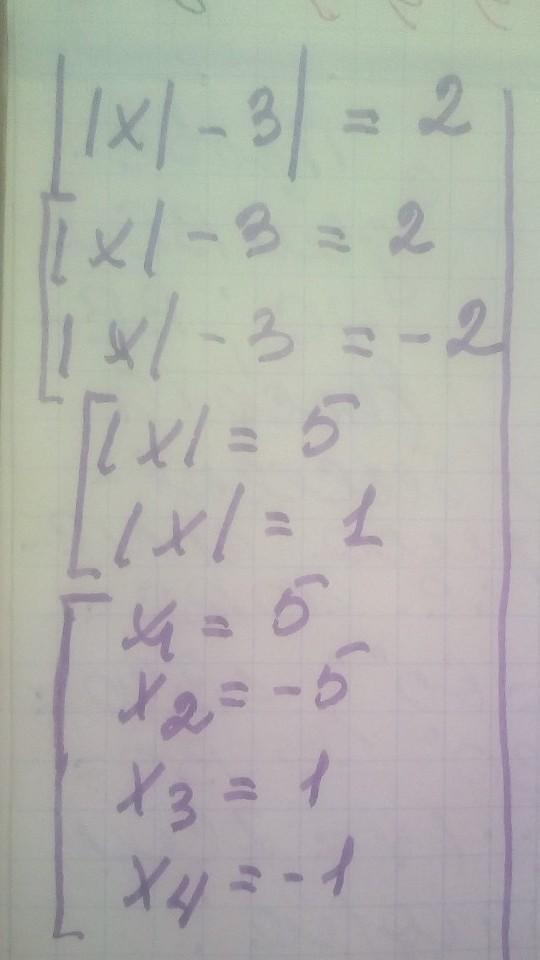 ||x| - 3| = 2
[|x| - 3 = 2
|x| - 3 = -2
[|x| = 5
|x| = 1
[x1 = 5
x2 = -5
x3 = 1
x4 = -1